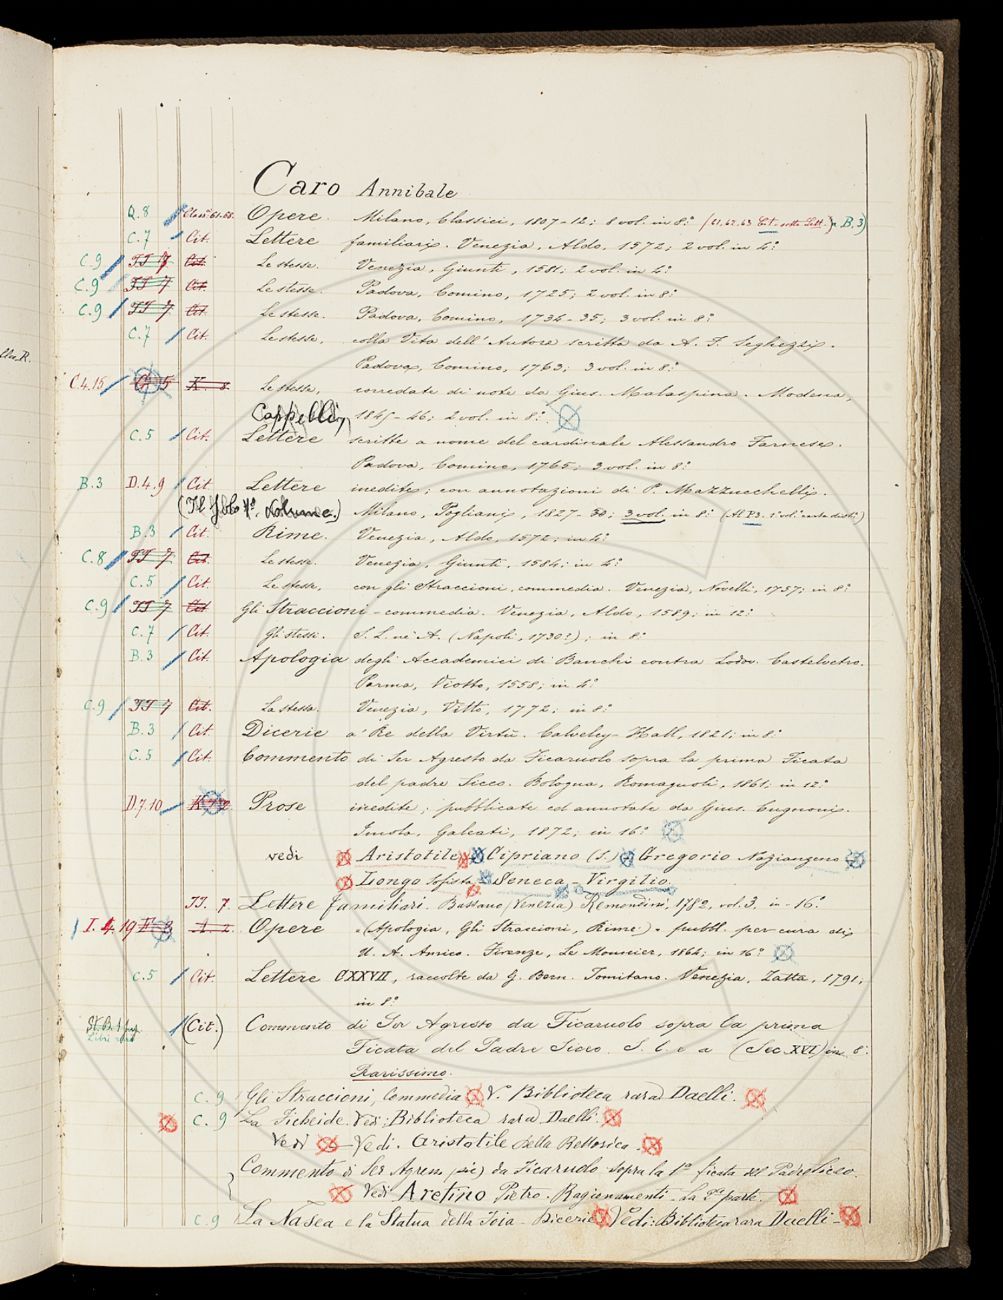 Caro Annibale
Q.8 Class. 61-68. Opere. Milano, Classici, 1807-12; 8 vol. in 8° (61.62.63 Cit. sotto Lett.) B.3)
C.7 Cit. Lettere familiari. Venezia, Aldo, 1572; 2 vol. in 4°
C.9 II 7 Cit. Le stesse. Venezia, Giunti, 1581; 2 vol. in 4°
C.9 II 7 Cit. Le stesse. Padova, Comino, 1725; 2 vol. in 8°
C.9 II 7 Cit. Le stesse. Padova, Comino, 1734-35; 3 vol. in 8°
C.7 Cit. Le stesse, colla Vita dell'Autore scritta da A. F. Seghezzi.
Padova, Comino, 1763; 3 vol. in 8°
C.4.15 K. Le stesse, corredate di note da Gius. Malaspina. Modena,
Cappelli, 1845-46; 2 vol. in 8°
C.5 Cit. Lettere scritte a nome del cardinale Alessandro Farnese.
Padova, Comino, 1765; 3 vol. in 8°
B.3 D.4.9 Cit. Lettere inedite; con annotazioni di P. Mazzucchelli.
Milano, Pogliani, 1827-30; 3 vol. in 8°
B.3 Cit. Rime. Venezia, Aldo, 1572; in 4°
C.8 II 7 Cit. Le stesse. Venezia, Giunti, 1584; in 4°
C.5 Cit. Le stesse, con gli Straccioni, commedia. Venezia, Novelli, 1757; in 8°
C.9 II 7 Cit. Gli Straccioni - commedia. Venezia, Aldo, 1589; in 12°
C.7 Cit. Gli stessi. S. L. nè A. (Napoli, 1730?); in 8°
B.3 Cit. Apologia degli Accademici di Banchi contra Lodov. Castelvetro.
Parma, Viotto, 1558; in 4°
C.9 II 7 Cit. La stessa. Venezia, Vitto, 1772; in 8°
B.3 Cit. Dicerie a' Re della Virtù. Calveley-Hall, 1821; in 8°
C.5 Cit. Commento di Ser Agresto da Ficaruolo sopra la prima Ficata
del padre Siceo. Bologna, Romagnoli, 1861; in 12°
D.7.10 Prose inedite; pubblicate ed annotate da Gius. Cugnoni.
Imola, Galeati, 1872; in 16°
vedi Aristotile Cipriano (S.) Gregorio Nazianzeno
Longo Sofista Seneca - Virgilio.
II. 7 Lettere familiari. Bassano (Venezia) Remondini, 1782, vol. 3. in-16°
I.4.19 Opere (Apologia, Gli Straccioni, Rime). pubbl. per cura di
U. A. Amico. Firenze, Le Monnier, 1864; in 16°
C.5 Cit. Lettere CXXVII, raccolte da G. Bern. Tomitano. Venezia, Zatta, 1791;
in 8°
(Cit.) Commento di Ser Agresto da Ficaruolo sopra la prima
Ficata del Padre Siceo. S. l. e a (Sec. XVI) in 8°
Rarissimo.
C.9 Gli Straccioni, Commedia V. Biblioteca rara Daelli.
C.9 La Ficheide. Vedi: Biblioteca rara Daelli.
Vedi Vedi. Aristotile della Rettorica.
Commento di Ser Agrem (sic) da Ficaruolo sopra la 1a ficata del Padre Siceo.
Vedi Aretino Pietro - Ragionamenti - la 2a parte.
C.9 La Nasea e la Statua della Foia - Dicerie Vedi: Biblioteca rara Daelli -